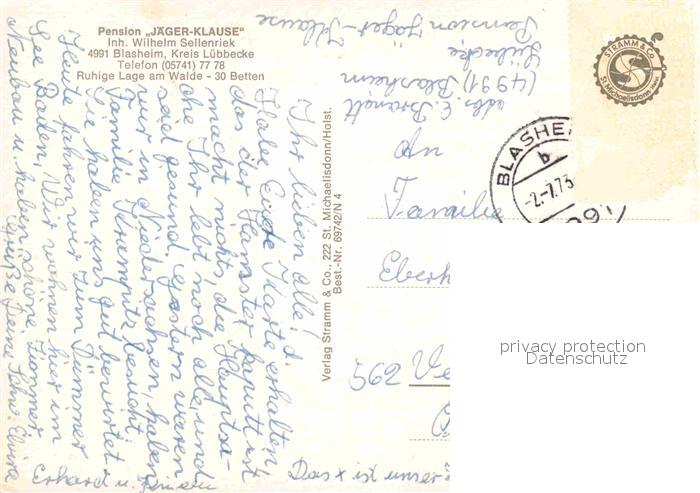 Pension „JÄGER-KLAUSE"
Inh. Wilhelm Sellenriek
4991 Blasheim, Kreis Lübbecke
Telefon (05741) 77 78
Ruhige Lage am Walde - 30 Betten
Ihr lieben alle! d.
Habe Eure Karte erhalten,
das der Hamster kaputt ist
macht nichts, die Hauptsa-
che Ihr lebt noch alle und
seid gesund. Gestern waren
wir in Niedersachsen, haben
Familie besucht.
Sie haben uns gut bewirtet.
Heute fahren wir zum Dümmer
See Baden. Wir wohnen hier im
Neubau u. haben schöne Zimmer
Grüße Deine
Erhard u.
Verlag Stramm & Co., 222 St. Michaelisdonn/Holst.
Best.-Nr. 69742/N 4
E. Brandt
(4991) Blasheim
Lübecke
Pension Jäger-Klause
STRAMM & CO.
St. Michaelisdonn
BLASHE
b
-2.-7.73
An
Familie
Eberh
562 Ve
Das
privacy protection
Datenschutz